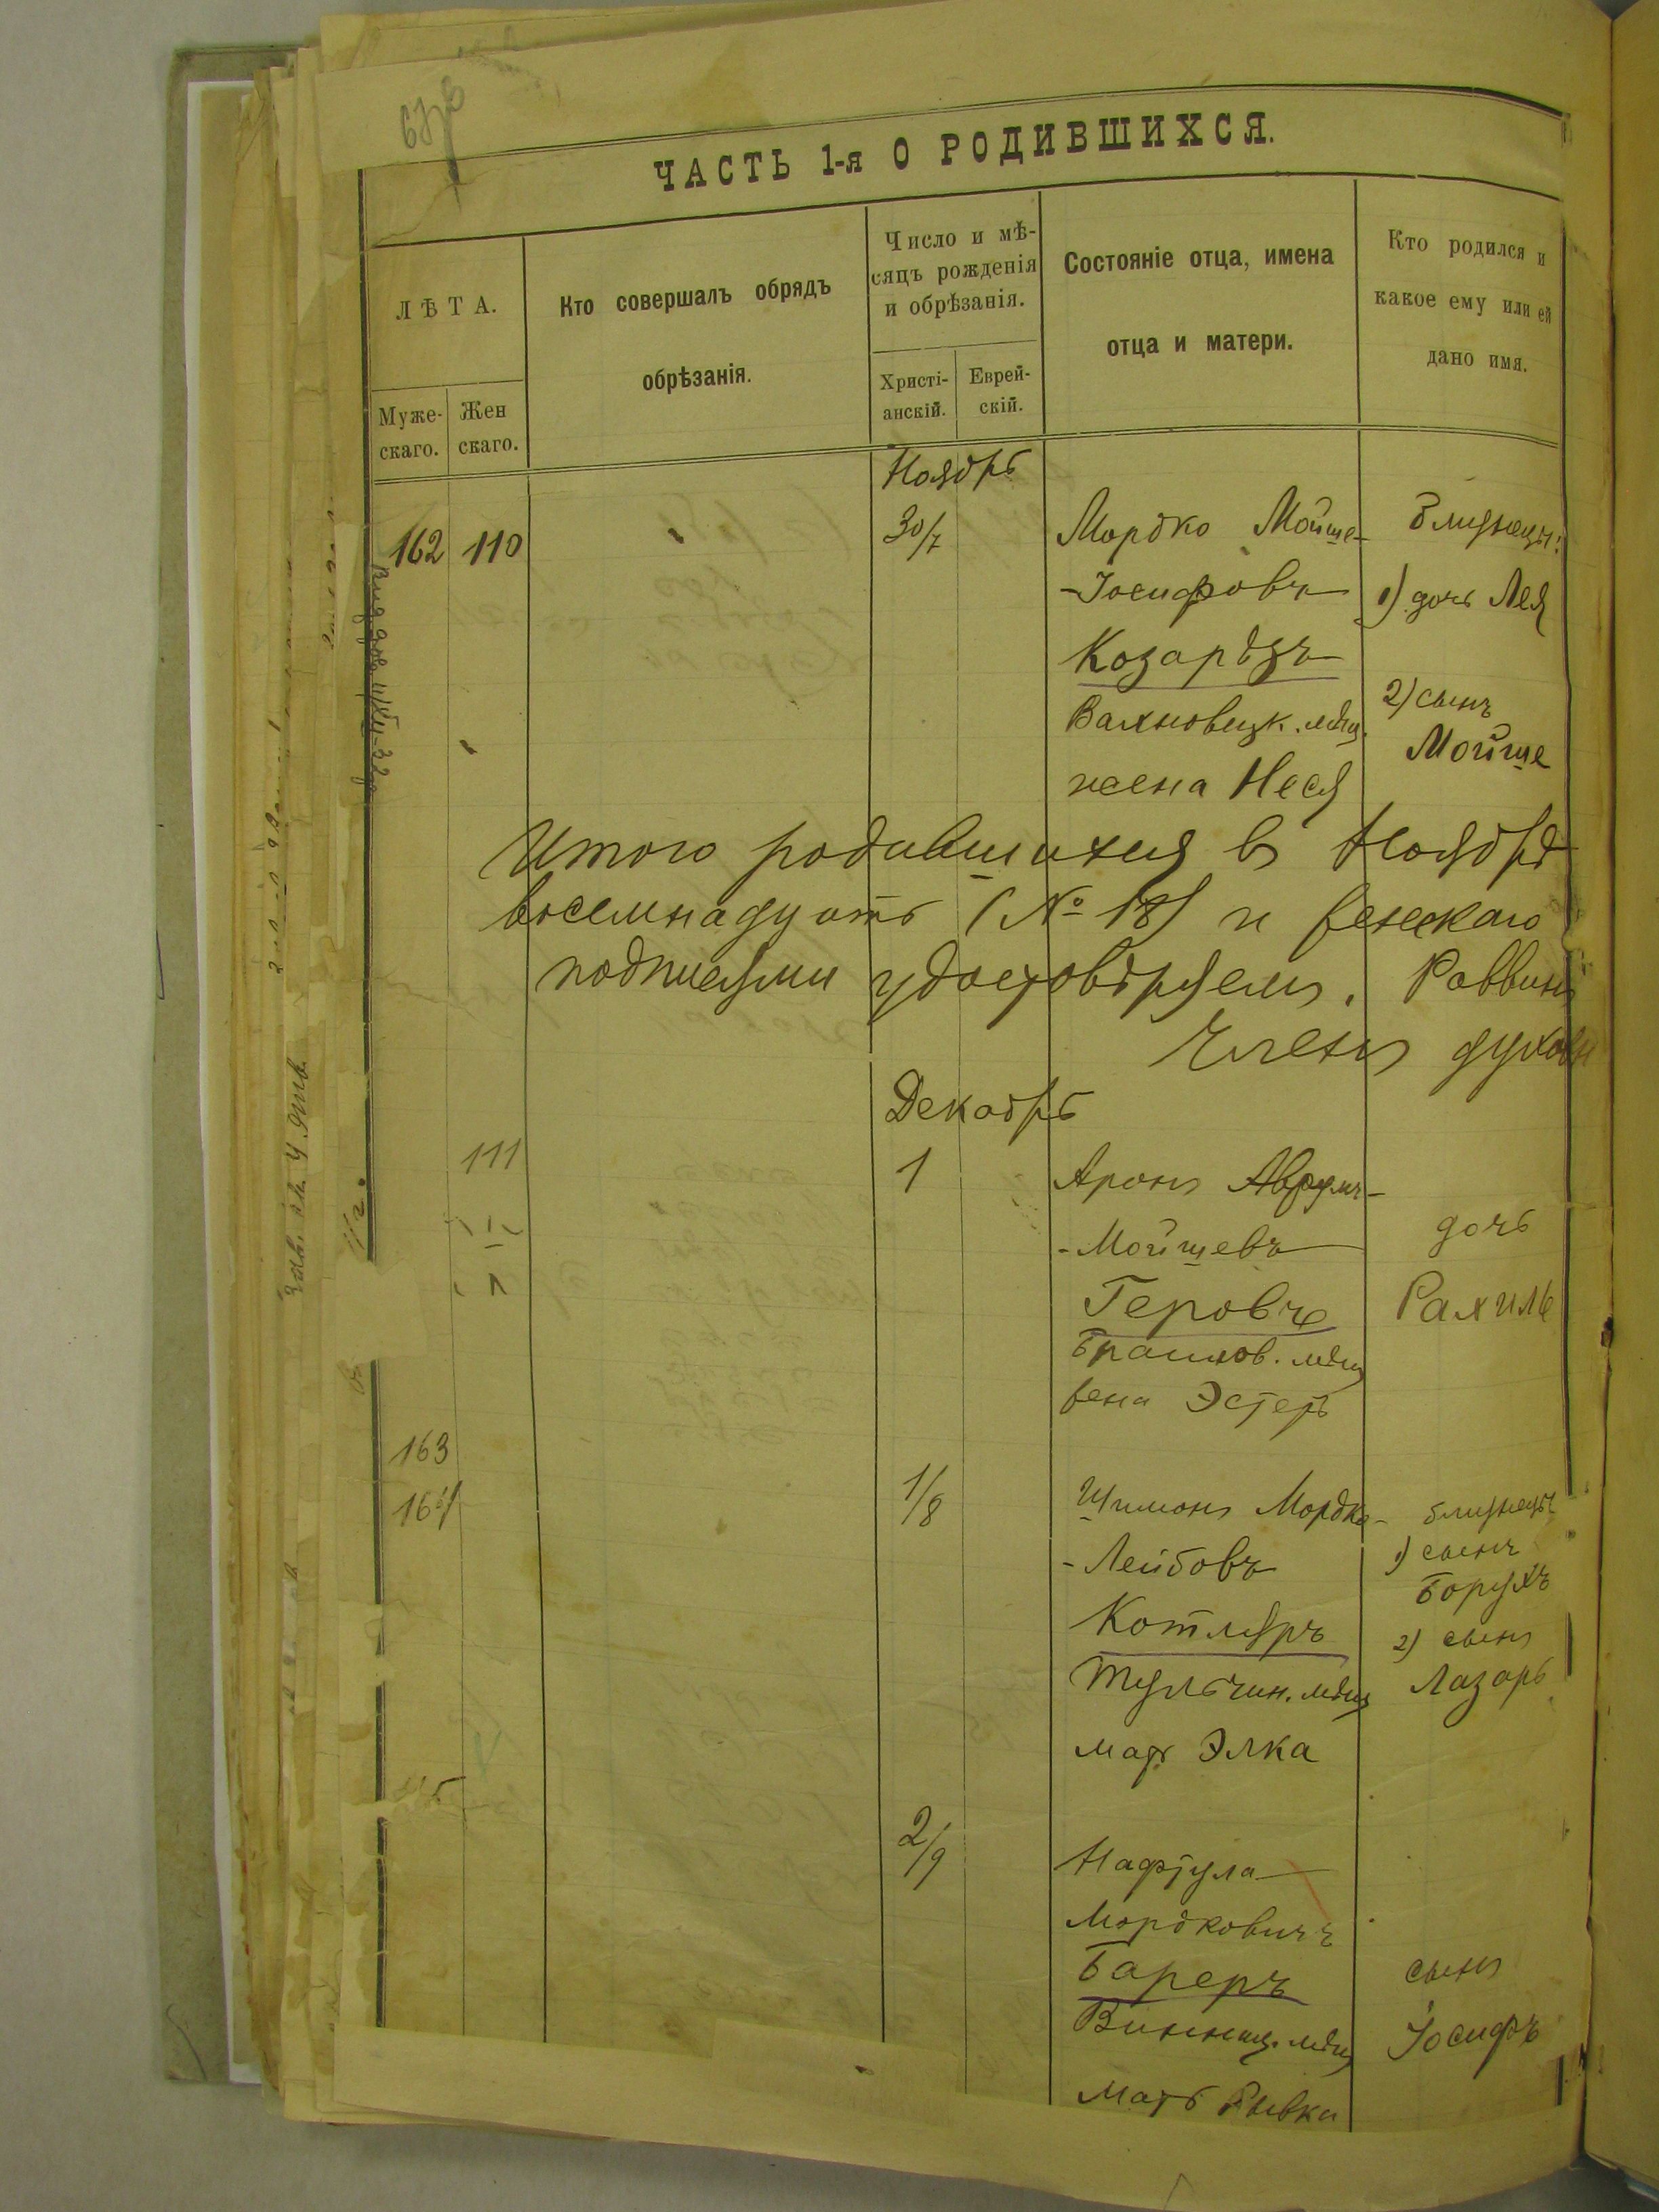 ЧАСТЬ 1-я О РОДИВШИХСЯ.
ЛѢТА.
Муже-
скаго.
Жен
скаго.
Кто совершалъ обрядъ
обрѣзанія.
Число и мѣ-
сяцъ рожденія
и обрѣзанія.
Христі-
анскій.
Еврей-
скій.
Состояніе отца, имена
отца и матери.
Кто родился и
какое ему или ей
дано имя.
Ноябрь
162 110
30/7
Мордко Мойше-
-Іосифовъ
Козардзъ
Вахновецк. мѣщ.
жена Неся
близнецы:
1) дочь Лея
2) сынъ
Мойше
Итого родившихся въ Ноябрѣ
восемнадцать (№ 18) и
подписями удостовѣряемъ. Раввинъ
Членъ духовн
Декабрь
111
1
Аронъ Аврумъ-
-Мойшевъ
Браилов. мѣщ
жена Эстеръ
дочь
Рахиль
163
164
1/8
Шимонъ Мордко-
-Лейбовъ
Котляръ
Тульчин. мѣщ
мать Элка
близнецы
1) сынъ
Борухъ
2) сынъ
Лазарь
2/9
Нафтула
Мордковичъ
Бареръ
Винниц. мѣщ
мать Рывка
сынъ
Іосифъ